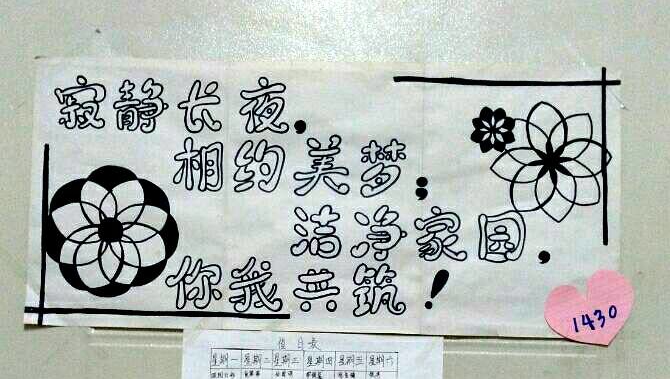 寂静长夜,
相约美梦;
洁净家园,
你我共筑!
1430
值日表
星期一 星期二 星期三 星期四 星期五 星期六